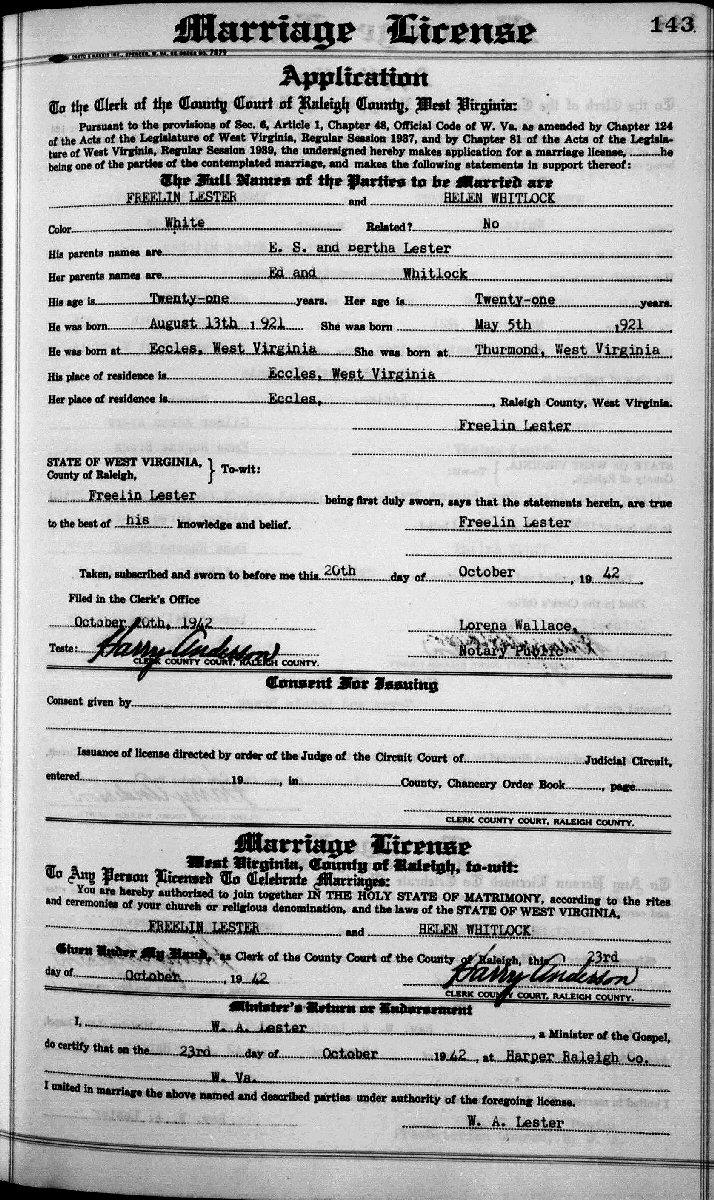 Marriage License
143
Application
To the Clerk of the County Court of Raleigh County, West Virginia:
Pursuant to the provisions of Sec. 6, Article 1, Chapter 48, Official Code of W. Va. as amended by Chapter 124
of the Acts of the Legislature of West Virginia, Regular Session 1937, and by Chapter 81 of the Acts of the Legisla-
ture of West Virginia, Regular Session 1939, the undersigned hereby makes application for a marriage license, ..........he
being one of the parties of the contemplated marriage, and makes the following statements in support thereof:
The Full Names of the Parties to be Married are
FREELIN LESTER and HELEN WHITLOCK
Color White Related? No
His parents names are E. S. and Bertha Lester
Her parents names are Ed and Whitlock
His age is Twenty-one years. Her age is Twenty-one years.
He was born August 13th 1921 She was born May 5th 1921
He was born at Eccles, West Virginia She was born at Thurmond, West Virginia
His place of residence is Eccles, West Virginia
Her place of residence is Eccles, , Raleigh County, West Virginia.
Freelin Lester
STATE OF WEST VIRGINIA, } To-wit:
County of Raleigh,
Freelin Lester being first duly sworn, says that the statements herein, are true
to the best of his knowledge and belief. Freelin Lester
Taken, subscribed and sworn to before me this 20th day of October , 19 42
Filed in the Clerk's Office
October 20th, 1942 Lorena Wallace,
Teste: Harry Anderson Notary Public
CLERK COUNTY COURT, RALEIGH COUNTY.
Consent For Issuing
Consent given by
Issuance of license directed by order of the Judge of the Circuit Court of Judicial Circuit,
entered 19 , in County, Chancery Order Book , page
CLERK COUNTY COURT, RALEIGH COUNTY.
Marriage License
West Virginia, County of Raleigh, to-wit:
To Any Person Licensed To Celebrate Marriages:
You are hereby authorized to join together IN THE HOLY STATE OF MATRIMONY, according to the rites
and ceremonies of your church or religious denomination, and the laws of the STATE OF WEST VIRGINIA,
FREELIN LESTER and HELEN WHITLOCK
Given Under My Hand, as Clerk of the County Court of the County of Raleigh, this 23rd
day of October , 19 42 Harry Anderson
CLERK COUNTY COURT, RALEIGH COUNTY.
Minister's Return or Endorsement
I, W. A. Lester , a Minister of the Gospel,
do certify that on the 23rd day of October 19 42 , at Harper Raleigh Co.
W. Va.
I united in marriage the above named and described parties under authority of the foregoing license.
W. A. Lester